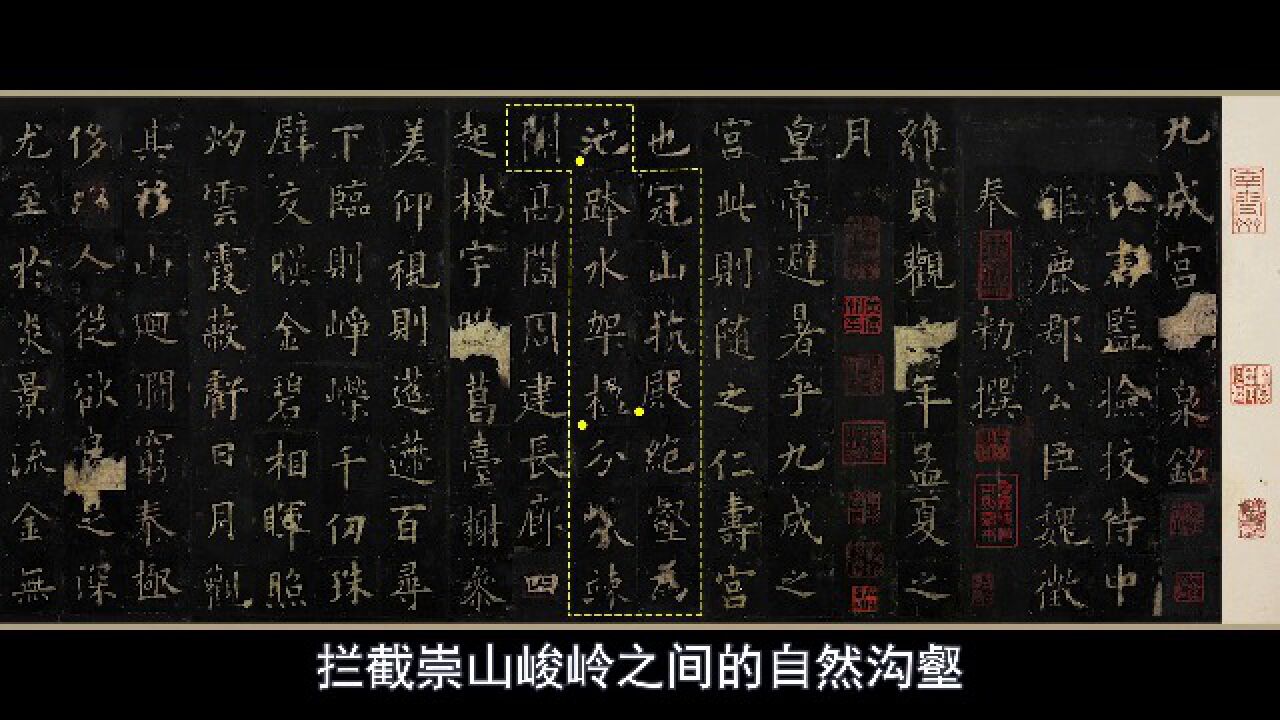 九成宮泉銘
監撿挍侍中
鹿郡公臣魏徵
奉勑撰
維貞觀年孟夏之
月
皇帝避暑乎九成之
宮此則隨之仁壽宮
也冠山抗殿絕壑為
池跨水架楹分巖竦
闕高閣周建長廊四
起棟宇葛臺榭參
差仰視則迢遰百尋
下臨則崢嶸千仞珠
璧交暎金碧相暉照
灼雲霞蔽虧日月觀
其移山迴澗窮泰極
侈以人從欲良深
尤至於炎景流金無
拦截崇山峻岭之间的自然沟壑